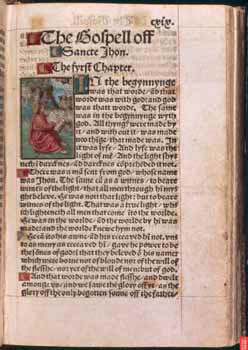 cxix.
The Gospell off
Sancte Jhon.
The fyrst Chapter.
In the begynnynge
was that worde, & that
worde was with god: and god
was thatt worde. The same
was in the begynnynge wyth
god. All thyngs were made by
it, and with out it, was made
noo thige: that made was. In
it was lyfe, And lyfe was the
light of mē. And the light shy-
neth i darcknes, & darcknes cōprehēded it not.
There was a mā sent from god, whose name
was Jhon. The same cā as a witnes, to beare
witnes of the light, that all men through hī myght
beleve. He was nott that light: but to beare
witnes of the light. That was a true light, wh-
ich lighteneth all men that come ito the worlde.
He was in the worlde, & the worlde by hī was
made: and the worlde knewe hym not.
He cā ito his awne, & his receaved hī not. vn-
to as meny as receaved hī, gave he power to be
the sōnes of god: i that they beleved ī his name:
which were borne not of bloude nor of the will of
the flesshe, nor yet of the will of men: but of god.
And that worde was made flesshe, and dwelt
amonge vs, and we sawe the glory off yt, as the
glory off the only begotten sonne off the father,